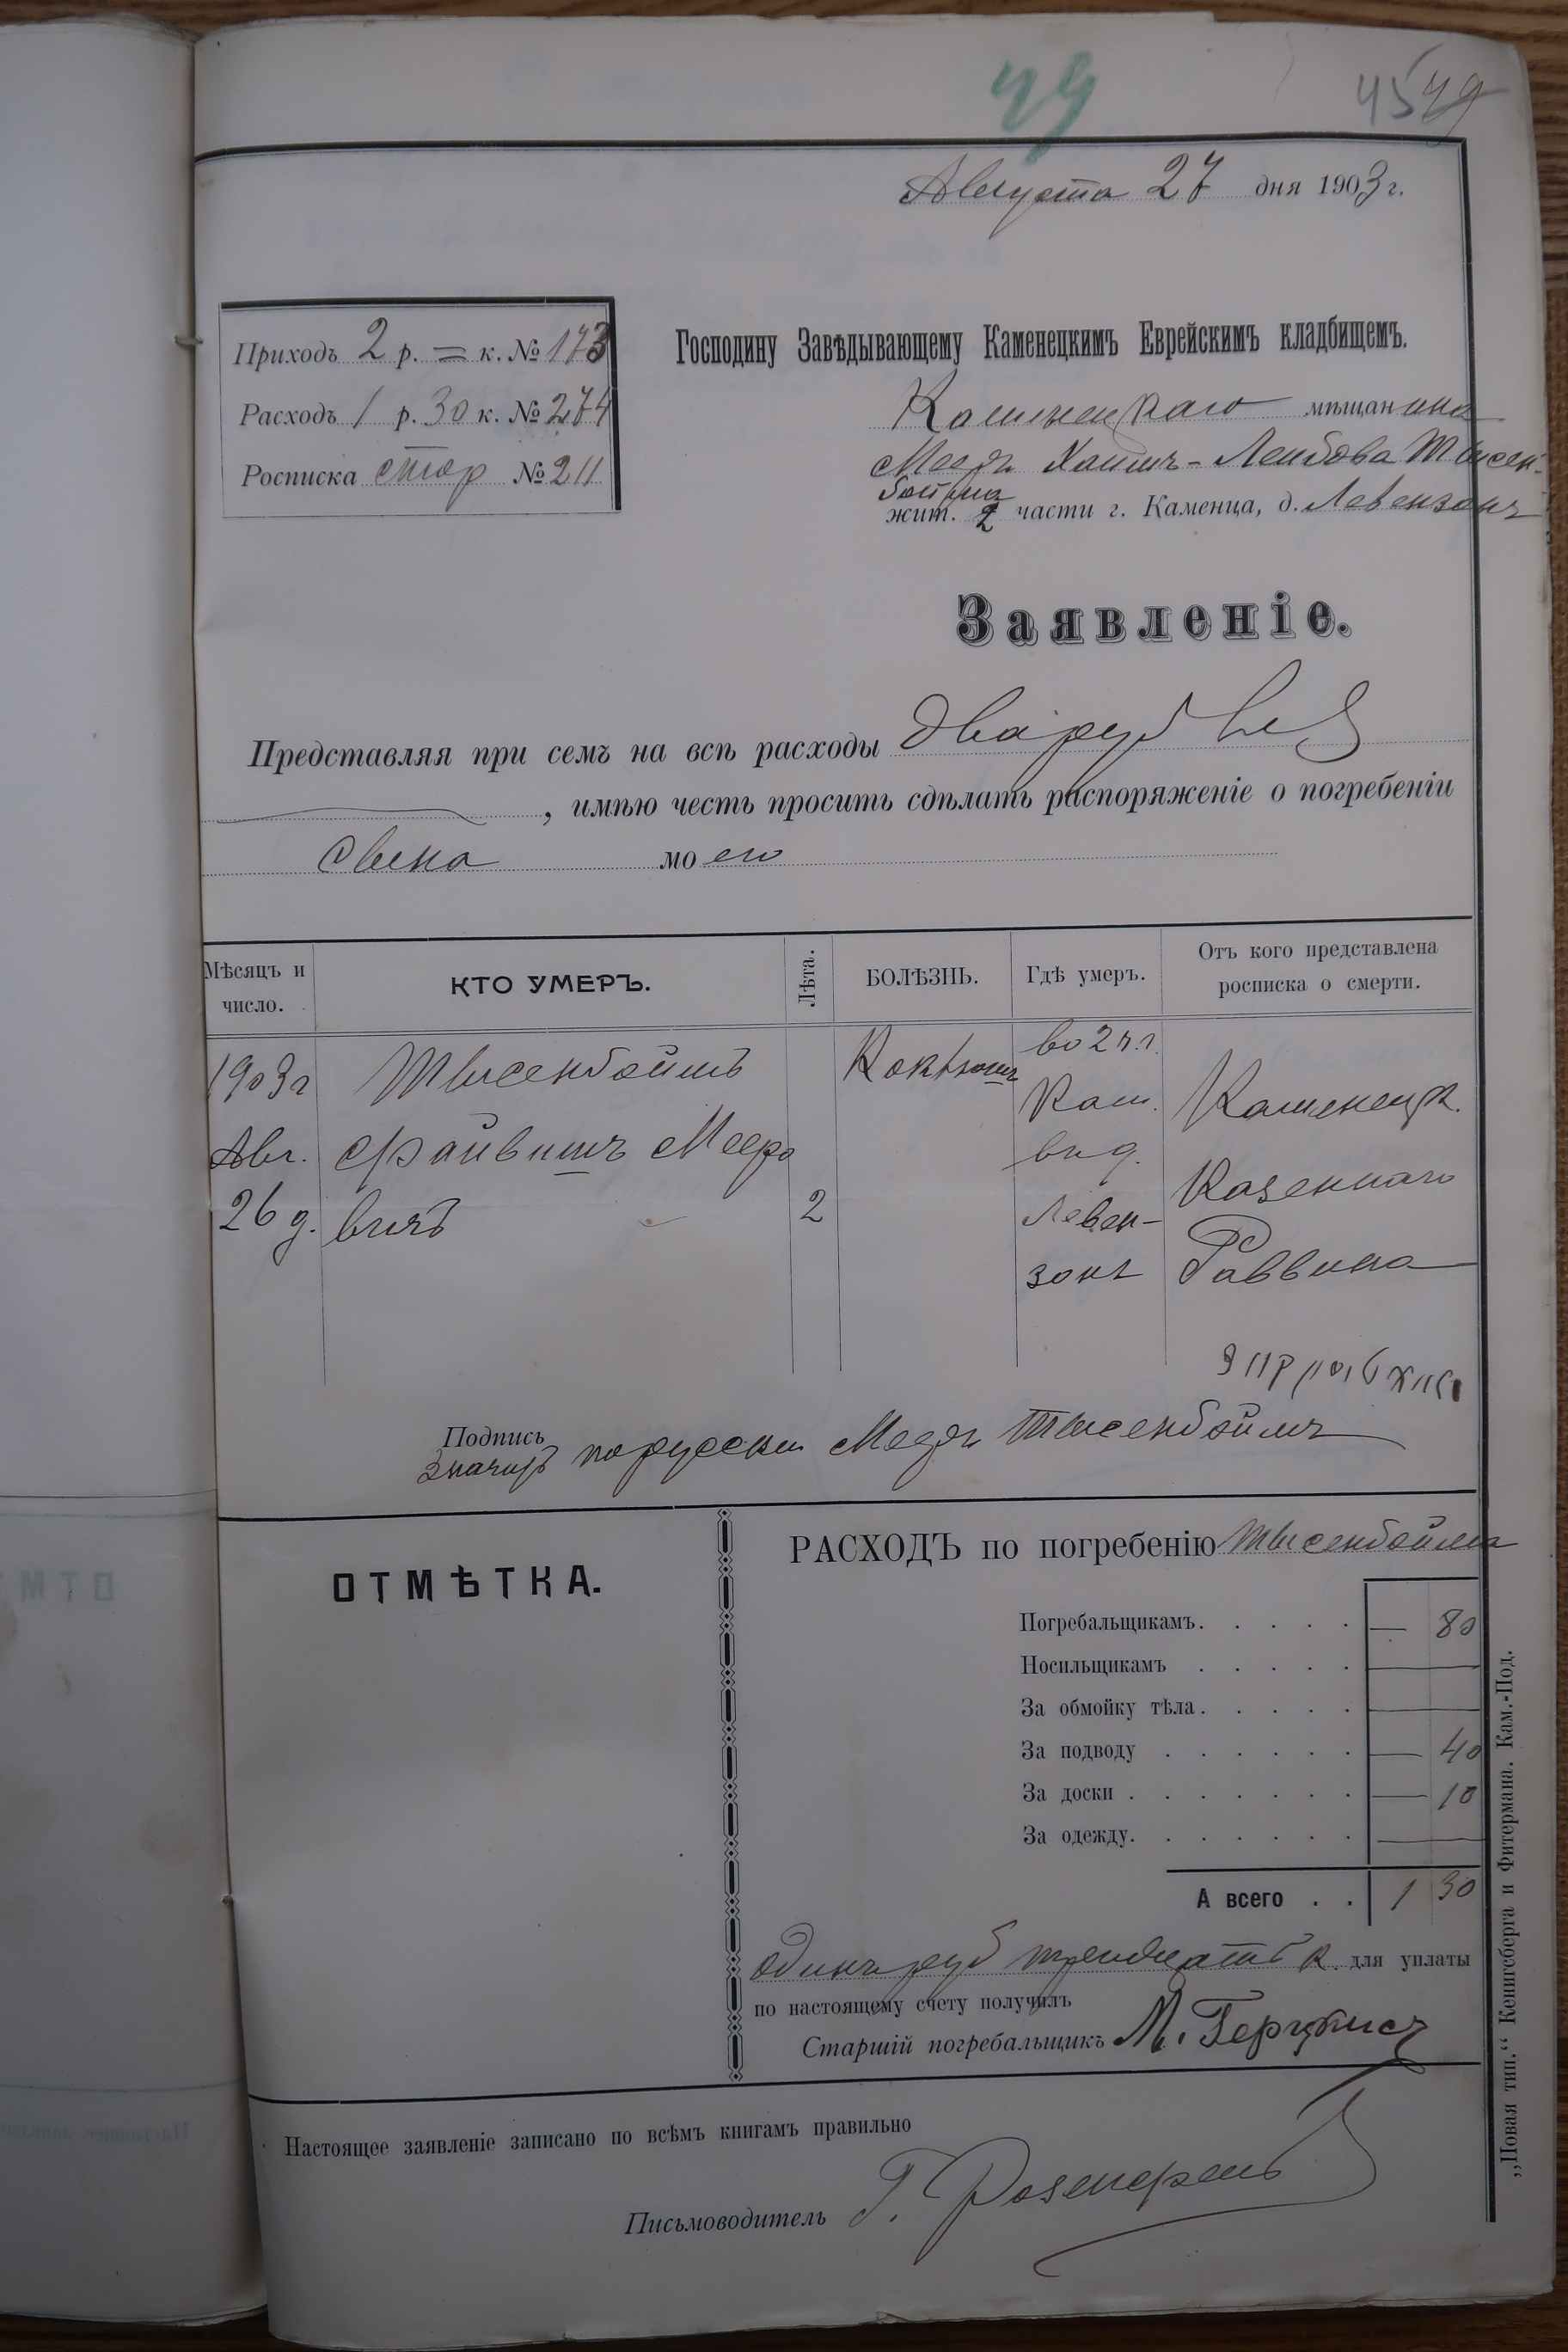 49
45 49
Августа 27 дня 1903 г.
Приходъ 2 р. = к. № 173
Расходъ 1 р. 30 к. № 274
Росписка стор № 211
Господину Завѣдывающему Каменецкимъ Еврейскимъ кладбищемъ.
Каменецкаго мѣщанина
Меера Хаимъ-Лейбова Тысен-
бойма
жит. 2 части г. Каменца, д. Левензонъ
Заявленіе.
Представляя при семъ на всѣ расходы два руб
, имѣю честь просить сдѣлать распоряженіе о погребеніи
сына моего
Мѣсяцъ и число.
КТО УМЕРЪ.
Лѣта.
БОЛѢЗНЬ.
Гдѣ умеръ.
Отъ кого представлена росписка о смерти.
1903 г Авг. 26 д.
Тысенбоймъ Файвишъ Мееро вичъ
2
Коклюшъ
во 2 ч. г. Кам. в. д. Левен- зонъ
Каменецк. Казеннаго Раввина
Подпись
значитъ по русски Мееръ Тысенбоймъ
ОТМѢТКА.
РАСХОДЪ по погребенію Тысенбойма
Погребальщикамъ. . . . . — 80
Носильщикамъ . . . . . —
За обмойку тѣла. . . . . —
За подводу . . . . . . — 40
За доски . . . . . . . — 10
За одежду. . . . . . . —
А всего . . 1 30
Одинъ руб тридцать к. для уплаты
по настоящему счету получилъ
Старшій погребальщикъ М.
Настоящее заявленіе записано по всѣмъ книгамъ правильно
Письмоводитель Г.
„Новая тип.“ Кенигсберга и Фитермана. Кам.-Под.